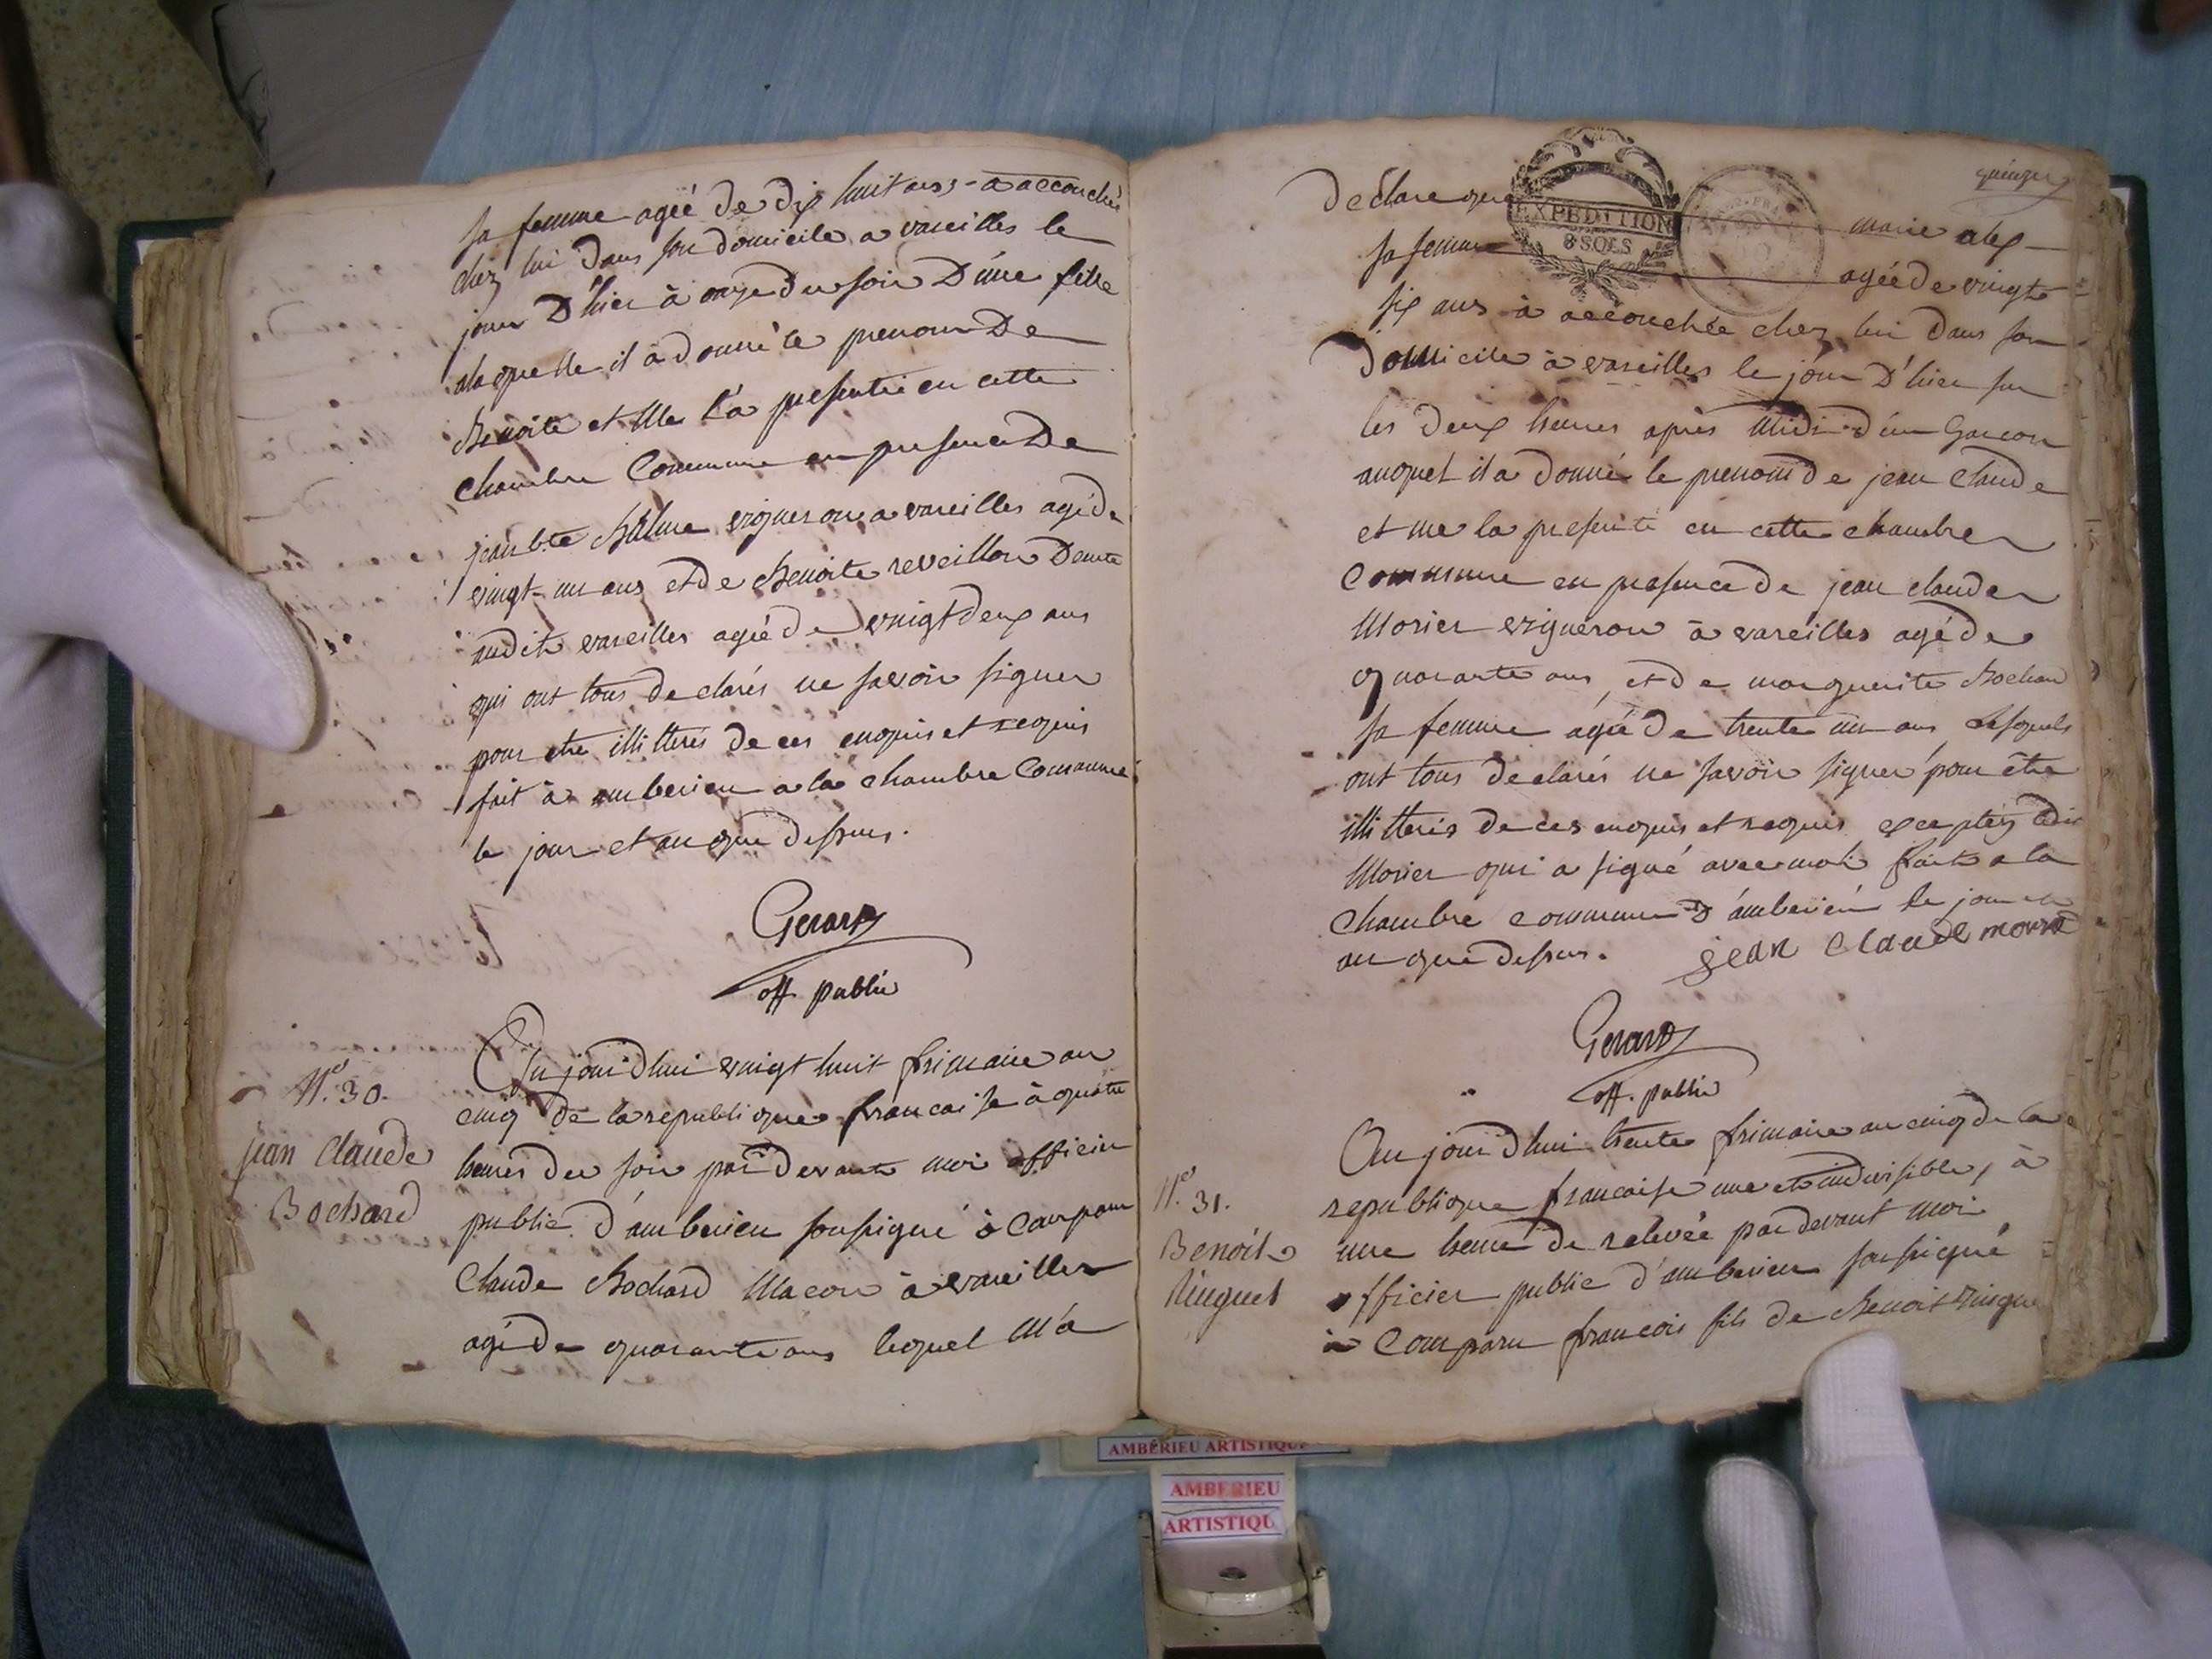 sa femme ageé de dix huit ans à accouchée
chez lui dans son domicile a vareilles le
jour D'hier à onze du soir D'une fille
alaquelle il à donné le prenom De
Benoite et Me l'a presentée en cette
chambre Commune en presence De
jean bte Balme vigneron a vareilles agé de
vingt-un ans et de Benoite reveillon Demte
audit vareilles ageé de vingt deux ans
qui ont tous declarés ne savoir signer
pour etre illitterés de ces enquis et requis
fait à amberieu a la chambre Commune
le jour et an que dessus.
Gerard
off. public
N.º 30.
jean Claude
Bochard
Au jourdhui vingt huit frimaire an
cinq de la republique francaise à quatre
heures du soir pardevant moi officier
public d'amberieu soussigné à Comparu
Claude Bochard Macon à vareilles
agé de quarante ans lequel M'a
quinze
Declare que marie alex
EXPEDITION
8 SOLS
sa femme ageé de vingt
six ans à accouchée chez lui dans son
Domicile à vareilles le jour D'hier sur
les deux heures après Midi d'un Garcon
auquel il a donné le prenom de jean Claude
et me la presenté en cette chambre
Commune en presence de jean claude
Morier vigneron à vareilles agé de
quarante ans, et de marguerite Bochard
sa femme ageé de trente un ans Lesquels
ont tous declarés ne savoir signer pour être
illitterés de ces enquis et requis exceptéz ledit
Morier qui a signé avec moi fait a la
Chambre commune d'amberieu le jour et
an que dessus. jean claude morier
Gerard
off. public
N.º 31.
Benoit
Ringuet
Au jourdhui trente frimaire an cinq de la
republique francaise une et indivisible, à
une heure de relevée pardevant moi
officier public d'amberieu soussigné
à Comparu francois fils de Benoit Ringuet
AMBÉRIEU ARTISTIQUE
AMBERIEU
ARTISTIQU